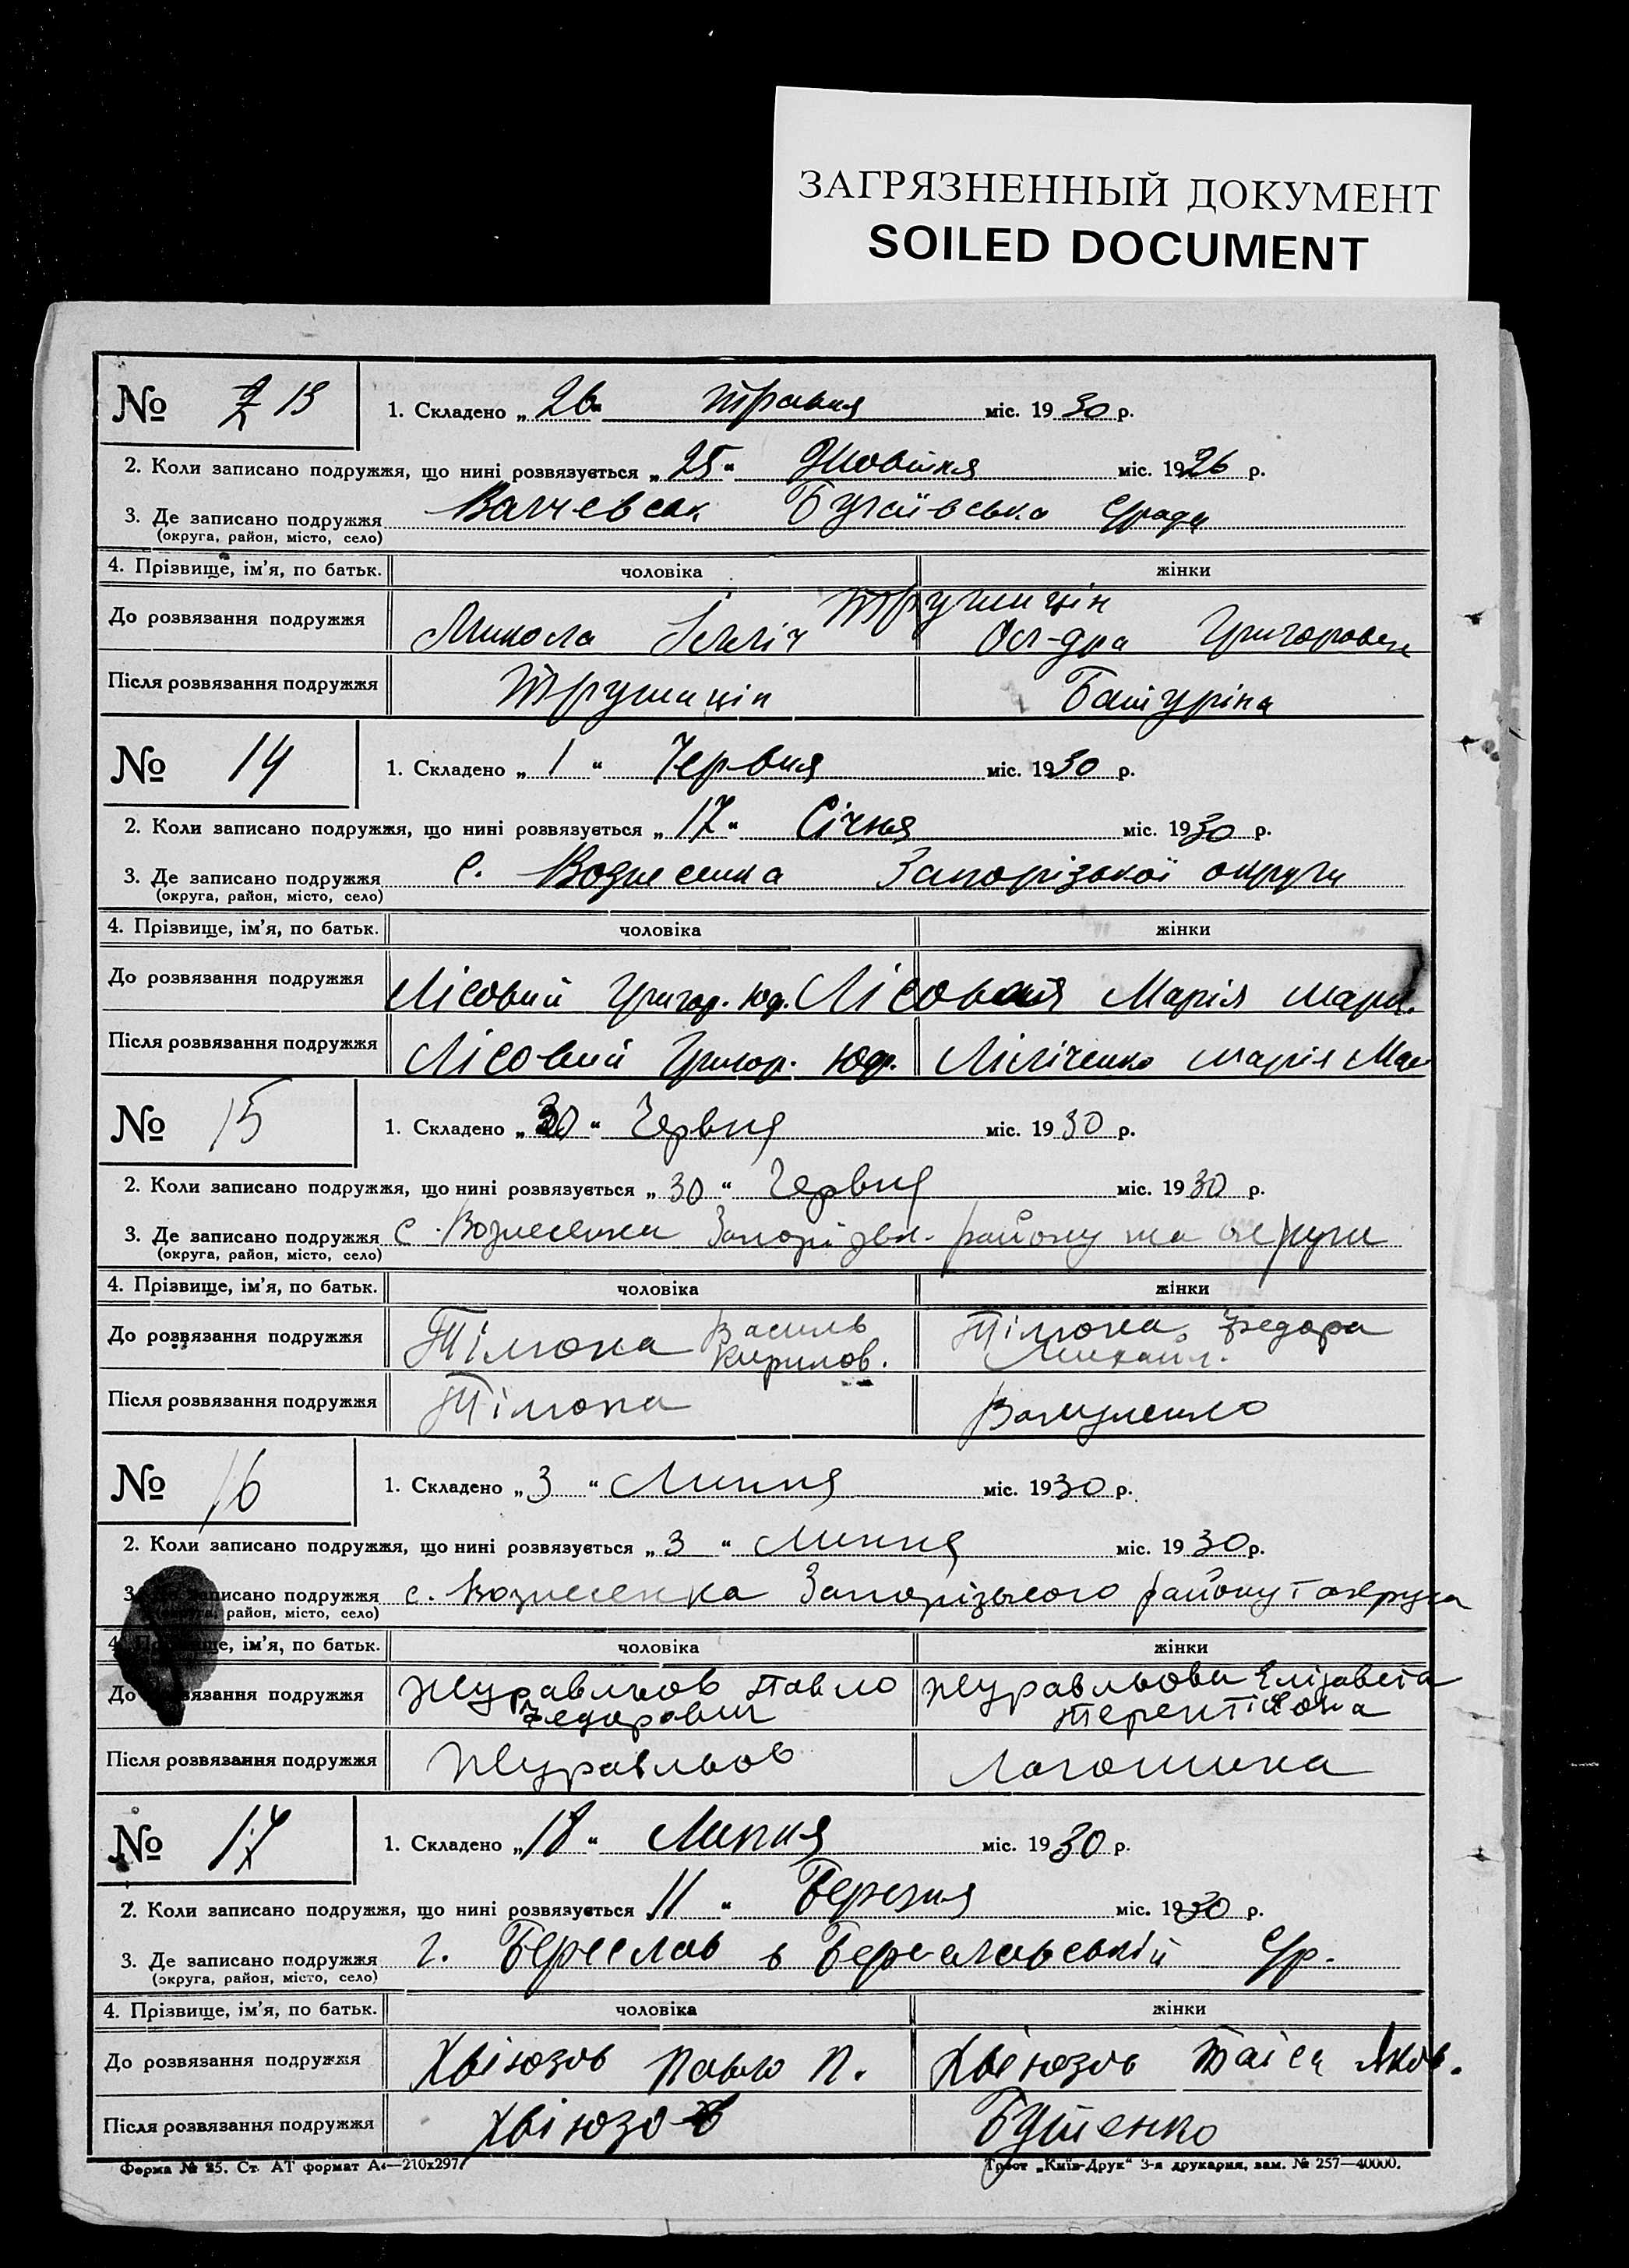 ЗАГРЯЗНЕННЫЙ ДОКУМЕНТ
SOILED DOCUMENT
№ 13
1. Складено „26“ Травня міс. 1930 р.
2. Коли записано подружжя, що нині розвязується „25“ Жовтня міс. 1926 р.
3. Де записано подружжя
(округа, район, місто, село)
4. Прізвище, ім'я, по батьк. чоловіка жінки
Трушицін
До розвязання подружжя Микола Ілліч Ол-дра Григоровна
Після розвязання подружжя Трушицін Батуріна
№ 14
1. Складено „1“ Червня міс. 1930 р.
2. Коли записано подружжя, що нині розвязується „17“ Січня міс. 1930 р.
3. Де записано подружжя с. Вознесенка Запорізької округи
(округа, район, місто, село)
4. Прізвище, ім'я, по батьк. чоловіка жінки
До розвязання подружжя Лісовий Григор. Юф. Лісовая Марія
Після розвязання подружжя Лісовий Григор. Юф. Марія
№ 15
1. Складено „30“ Червня міс. 1930 р.
2. Коли записано подружжя, що нині розвязується „30“ Червня міс. 1930 р.
3. Де записано подружжя с. Вознесенка району та округи
(округа, район, місто, село)
4. Прізвище, ім'я, по батьк. чоловіка жінки
До розвязання подружжя Василь Федора
Кирилов. Михайл.
Після розвязання подружжя
№ 16
1. Складено „3“ Липня міс. 1930 р.
2. Коли записано подружжя, що нині розвязується „3“ Липня міс. 1930 р.
3. записано подружжя с. Вознесенка Запорізького району і округи
район, місто, село)
4. ім'я, по батьк. чоловіка жінки
До розвязання подружжя Журавльов Павло Журавльова Елізавета
Федорович Терентівона
Після розвязання подружжя Журавльов Логошина
№ 17
1. Складено „18“ Липня міс. 1930 р.
2. Коли записано подружжя, що нині розвязується „11“ Березня міс. 1930 р.
3. Де записано подружжя г. Береслав в Береславській С/р.
(округа, район, місто, село)
4. Прізвище, ім'я, по батьк. чоловіка жінки
До розвязання подружжя Хвіюзов Павло П. Хвіюзов Таіса Яков.
Після розвязання подружжя Хвіюзов Бутенко
Форма № 25. Ст. АТ формат А4—210х297 Трест „Київ-Друк“ 3-я друкарня, зам. № 257—40000.